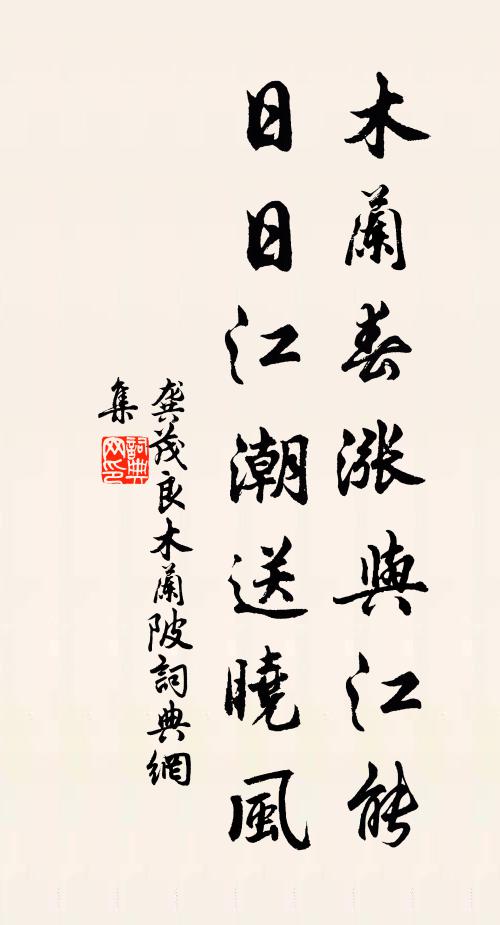 木蘭春漲與江能
日日江潮送曉風
龔茂良木蘭陂詞典網
集
詞典
网印